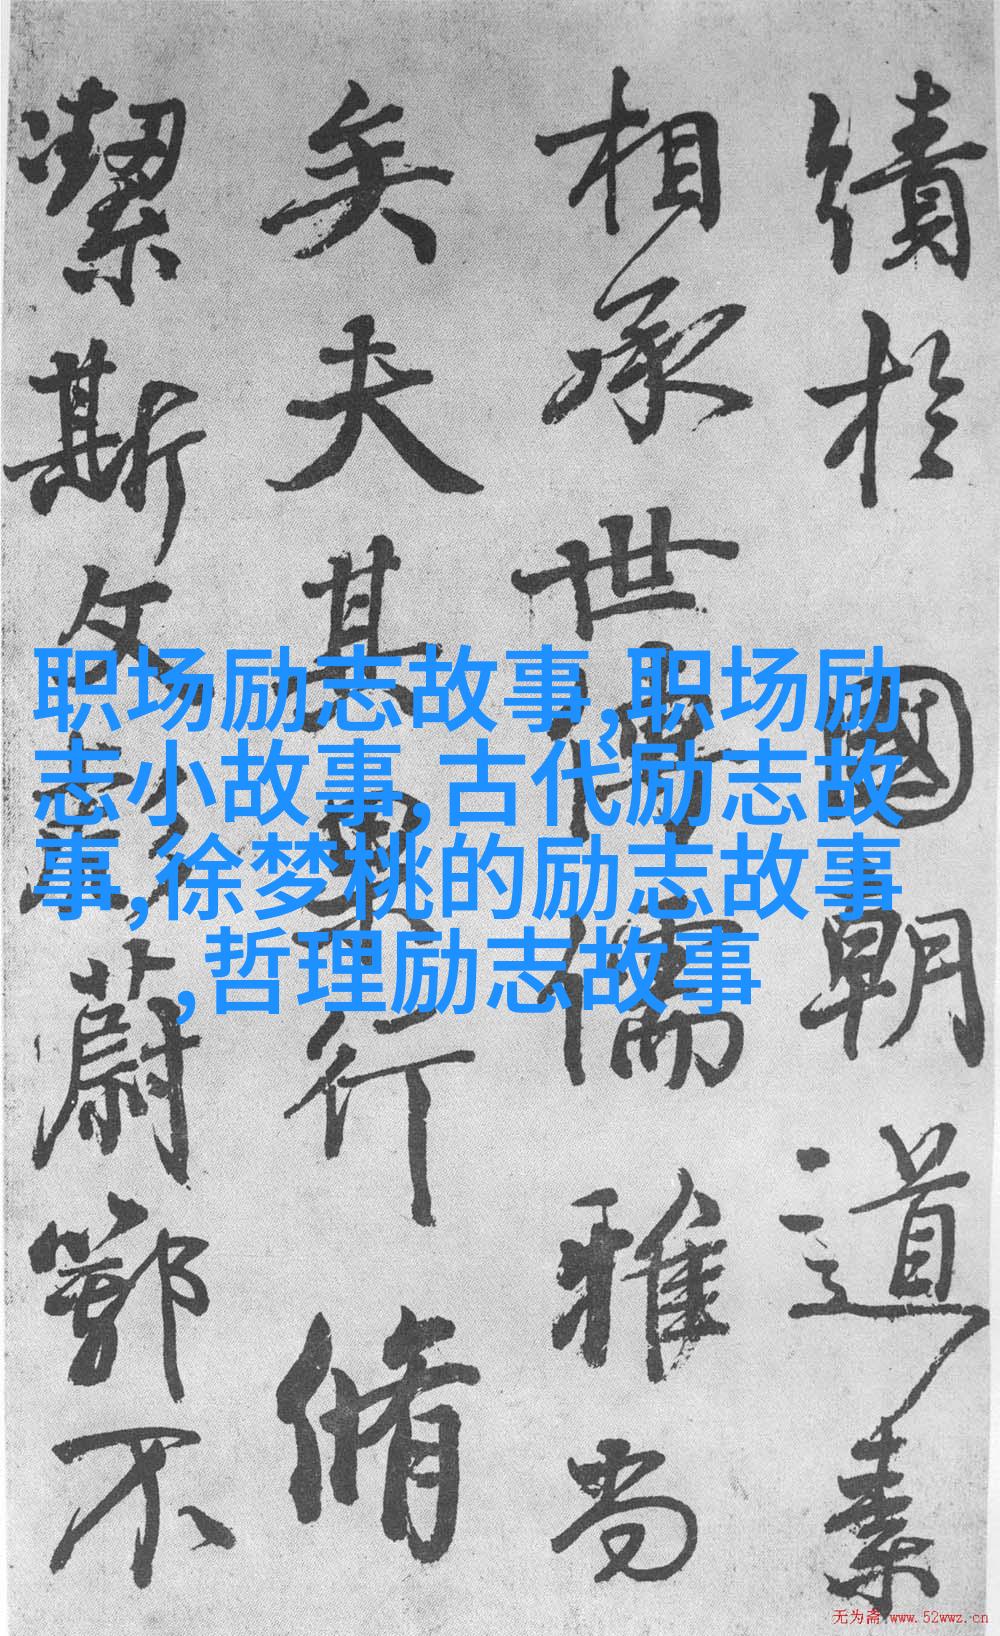 績於國朝道素
相承世傳儒雅尚
矣夫其果行脩
潔斯文彪蔚鄂不
职场励志故事,职场励
志小故事,古代励志故
事,徐梦桃的励志故事
,哲理励志故事
无为斋 www.52wwz.cn